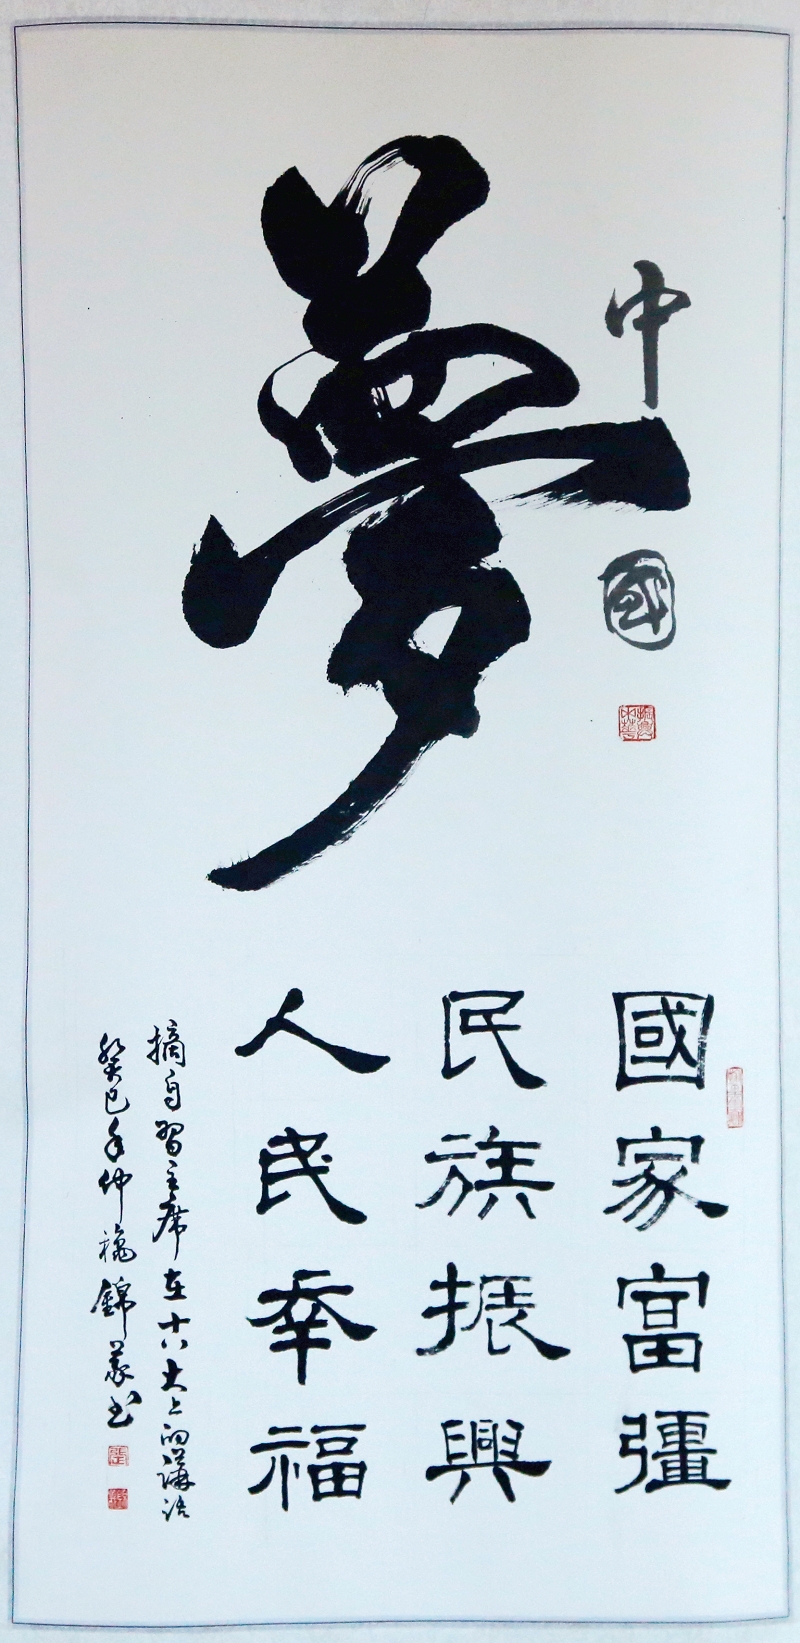 中國
夢
振興中華
國家富彊
民族振興
人民幸福
摘自習主席在十八大上的講話
癸巳年仲穐錦義书